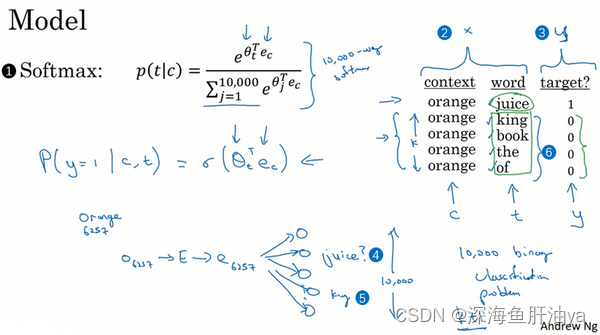 Model
❶ Softmax: p(t|c) = e^{θ_t^T e_c} / ∑_{j=1}^{10,000} e^{θ_j^T e_c}
10,000-way
softmax
❷ x
❸ y
context word target?
orange juice 1
orange king 0
orange book 0
orange the 0
orange of 0
k
❻
P(y=1 | c,t) = σ(θ_t^T e_c) ←
c t y
Orange
6257
o_{6257} → E → e_{6257}
juice? ❹
king ❺
10,000
10,000 binary
classification
problem
CSDN @深海鱼肝油ya
Andrew Ng